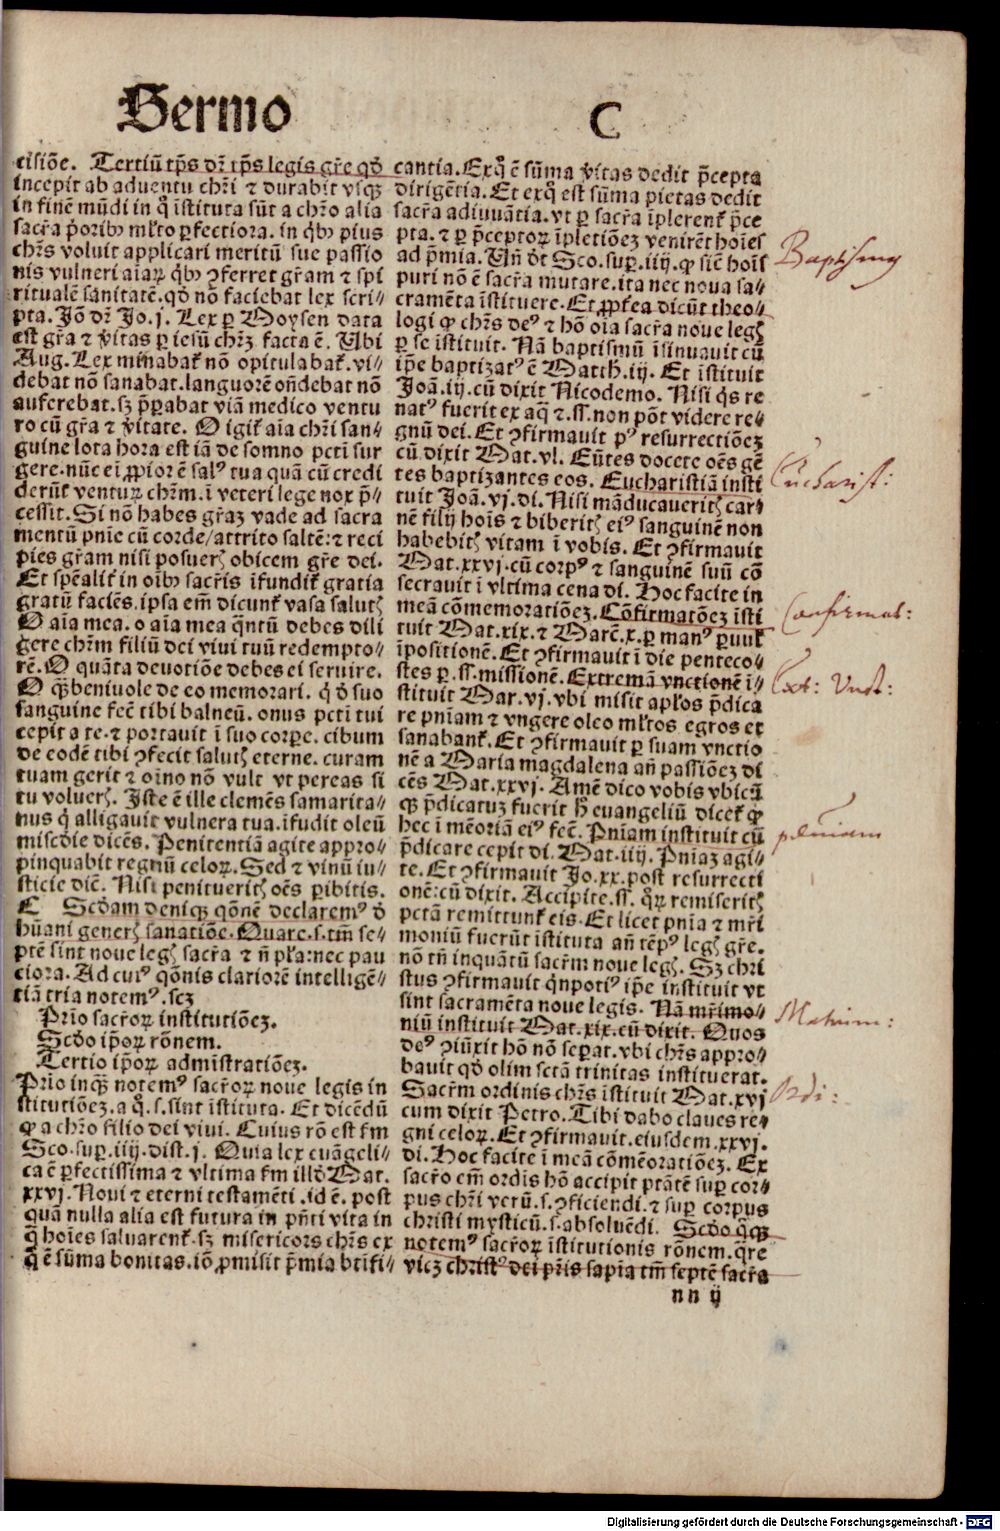 Sermo C
cisiōe. Tertiū tp̄s dr̄ tp̄s legis gr̄e qd̓
incepit ab aduentu chr̄i ⁊ durabit vsqꝫ
in finē mūdi in q̊ īstituta sūt a chr̄o alia
sacr̄a p̄oribꝰ ml̓to ꝑfectiora. in qb̓ꝰ pius
chr̄s voluit applicari meritū sue passio
nis vulneri aīarꝝ qb̓ꝰ ꝯferret gr̄am ⁊ spi
ritualē sanitatē. qd̓ nō faciebat lex scri⸗
pta. Jō dr̄ Jo. j. Lex ꝑ Moysen data
est gr̄a ⁊ v̓itas ꝑ iesū chr̄ꝫ facta ē. Ubi
Aug. Lex minabat̉ nō opitulabat̉. vi⸗
debat nō sanabat. languorē on̄debat nō
auferebat. sꝫ p̄ꝑabat viā medico ventu
ro cū gr̄a ⁊ v̓itate. O igit̉ aīa chr̄i san⸗
guine lota hora est iā de somno pct̄i sur
gere. nūc em̄ ꝓpior ē salꝰ tua quā cū credi
derūt venturꝝ chr̄m. ī veteri lege nox p̄⸗
cessit. Si nō habes gr̄aꝫ vade ad sacra
mentū pnīe cū corde/attrito saltē: ⁊ reci
pies gr̄am nisi posuerꝭ obicem gr̄e dei.
Et spēalit̉ in oībꝰ sacr̄is īfundit̉ gratia
gratū faciēs. ipsa em̄ dicunt̉ vasa salutꝭ
O aīa mea. o aīa mea q̄ntū debes dili
gere chr̄m filiū dei viui tuū redempto⸗
rē. O quāta deuotiōe debes ei seruire.
O qꝫ beniuole de eo memorari. q̓ d̓ suo
sanguine fec̄ tibi balneū. onus pct̄i tui
cepit a te. ⁊ portauit ī suo corꝑe. cibum
de eodē tibi ꝯfecit salutꝭ eterne. curam
tuam gerit ⁊ oīno nō vult vt pereas si
tu voluerꝭ. Iste ē ille clemēs samarita⸗
nus q̓ alligauit vulnera tua. īfudit oleū
miscd̓ie dicēs. Penitentiā agite appro⸗
pinquabit regnū celoꝝ. Sed ⁊ vinū iu⸗
sticie dic̄. Nisi penitueritꝭ oēs ꝑibitis.
C Scd̓am deniqꝫ qōnē declaremꝰ d̓
hūani generꝭ sanatiōe. Quare. s. tm̄ se⸗
ptē sint noue legꝭ sacr̄a ⁊ n̄ pl̓a: nec pau
ciora. Ad cuiꝰ qōnis clariorē intelligē⸗
tiā tria notemꝰ. scꝫ
Prīo sacr̄oꝝ institutiōeꝫ.
Scd̓o ip̄oꝝ rōnem.
Tertio ip̄oꝝ admīstratiōeꝫ.
Prīo inqꝫ notemꝰ sacr̄oꝝ noue legis in
stitutiōeꝫ. a q̊. s. sint īstituta. Et dicēdū
ꝙ a chr̄o filio dei viui. Cuius rō est fm
Sco. suꝑ. iiij. dist. j. Quia lex euāgeli⸗
ca ē ꝑfectissima ⁊ vltima fm illd̓ Mat.
xxvj. Noui ⁊ eterni testamēti. id ē. post
quā nulla alia est futura in pn̄ti vita in
q̄ hoīes saluarent̉. sꝫ misericors chr̄s ex
q̊ ē sūma bonitas. iō ꝓmisit p̄mia btīfi⸗
cantia. Exq̊ ē sūma v̓itas dedit p̄cepta
dirigētia. Et exq̊ est sūma pietas dedit
sacr̄a adiuuātia. vt ꝑ sacr̄a īplerent̉ p̄ce
pta. ⁊ ꝑ p̄ceptoꝝ īpletiōeꝫ venirēt hoīes
ad p̄mia. Un̄ dt̓ Sco. suꝑ. iiij. ꝙ sic̄ hoīs
puri nō ē sacr̄a mutare. ita nec noua sa⸗
cramēta īstituere. Et ꝓpt̓ea dicūt theo⸗
logi ꝙ chr̄s deꝰ ⁊ hō oīa sacr̄a noue legꝭ
ꝑ se īstituit. Nā baptismū īsinuauit cū
ip̄e baptizatꝰ ē Matth. iij. Et īstituit
Joā. iij. cū dixit Nicodemo. Nisi q̓s re
natꝰ fuerit ex aq̄ ⁊ .ss. non pōt videre re⸗
gnū dei. Et ꝯfirmauit pꝰ resurrectiōeꝫ
cū dixit Mat. vl. Eūtes docete oēs gē
tes baptizantes eos. Eucharistiā insti
tuit Joā. vj. di. Nisi māducaueritꝭ car⸗
nē filij hoīs ⁊ biberitꝭ eiꝰ sanguinē non
habebitꝭ vitam ī vobis. Et ꝯfirmauit
Mat. xxvj. cū corpꝰ ⁊ sanguinē suū cō
secrauit ī vltima cena di. Hoc facite in
meā cōmemoratiōeꝫ. Cōfirmatōeꝫ īsti
tuit Mat. xix. ⁊ Marc̄. x. ꝑ manꝰ ꝑuul̓
īpositionē. Et ꝯfirmauit ī die penteco⸗
stes ꝑ .ss. missionē. Extremā vnctionē ī⸗
stituit Mar. vj. vbi misit apl̓os p̄dica
re pnīam ⁊ vngere oleo ml̓tos egros et
sanabant̉. Et ꝯfirmauit ꝑ suam vnctio
nē a Maria magdalena an̄ passiōeꝫ di
cēs Mat. xxvj. Amē dico vobis vbicū
qꝫ p̄dicatuꝫ fuerit h̓ euangeliū dicet̉ ꝙ
hec ī mēoriā eiꝰ fec̄. Pnīam instituit cū
p̄dicare cepit di. Mat. iiij. Pnīaꝫ agi⸗
te. Et ꝯfirmauit Jo. xx. post resurrecti
onē: cū dixit. Accipite .ss. qꝝ remiseritꝭ
pctā remittunt̉ eis. Et licet pnīa ⁊ mr̄i
moniū fuerūt īstituta an̄ tēpꝰ legꝭ gr̄e.
nō tn̄ inquātū sacr̄m noue legꝭ. Sꝫ chri
stus ꝯfirmauit q̄npotiꝰ ip̄e instituit vt
sint sacramēta noue legis. Nā mr̄imo⸗
niū instituit Mat. xix. cū dixit. Quos
deꝰ ꝯiūxit hō nō seꝑat. vbi chr̄s appro⸗
bauit qd̓ olim sctā trinitas instituerat.
Sacr̄m ordinis chr̄s īstituit Mat. xvj
cum dixit Petro. Tibi dabo claues re⸗
gni celoꝝ. Et ꝯfirmauit. eiusdem. xxvj.
di. Hoc facite ī meā cōmēoratiōeꝫ. Ex
sacr̄o em̄ ordīs hō accipit ptātē suꝑ cor⸗
pus chr̄i verū. s. ꝯficiendi. ⁊ suꝑ corpus
christi mysticū. s. absoluēdi. Scd̓o qꝫqꝫ
notemꝰ sacr̄oꝝ īstitutionis rōnem. q̄re
vicꝫ christꝰ dei pr̄is sapīa tm̄ septē sacr̄a
nn ij
Baptismus
Eucharist:
Confirmat:
Ext: Unct:
pēniam
Matrim:
Ordi:
Digitalisierung gefördert durch die Deutsche Forschungsgemeinschaft - DFG